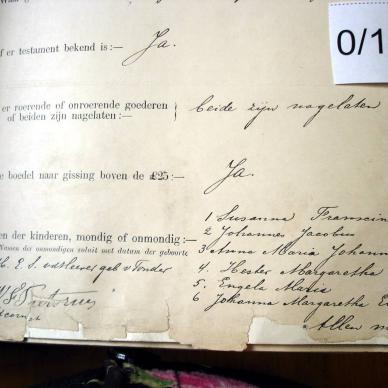 0/1
f er testament bekend is:— Ja.
er roerende of onroerende goederen
of beiden zijn nagelaten:— } beide zijn nagelaten
e boedel naar gissing boven de £25:— Ja.
en der kinderen, mondig of onmondig:—
Namen der onmondigen voluit met datum der geboorte
1 Susanna
2 Johannes Jacobus
3 Anna Maria Johann
4. Hester Margaretha
5. Engela Maria
6 Johanna Margaretha E
Allen m
E. S. geb v Tonder